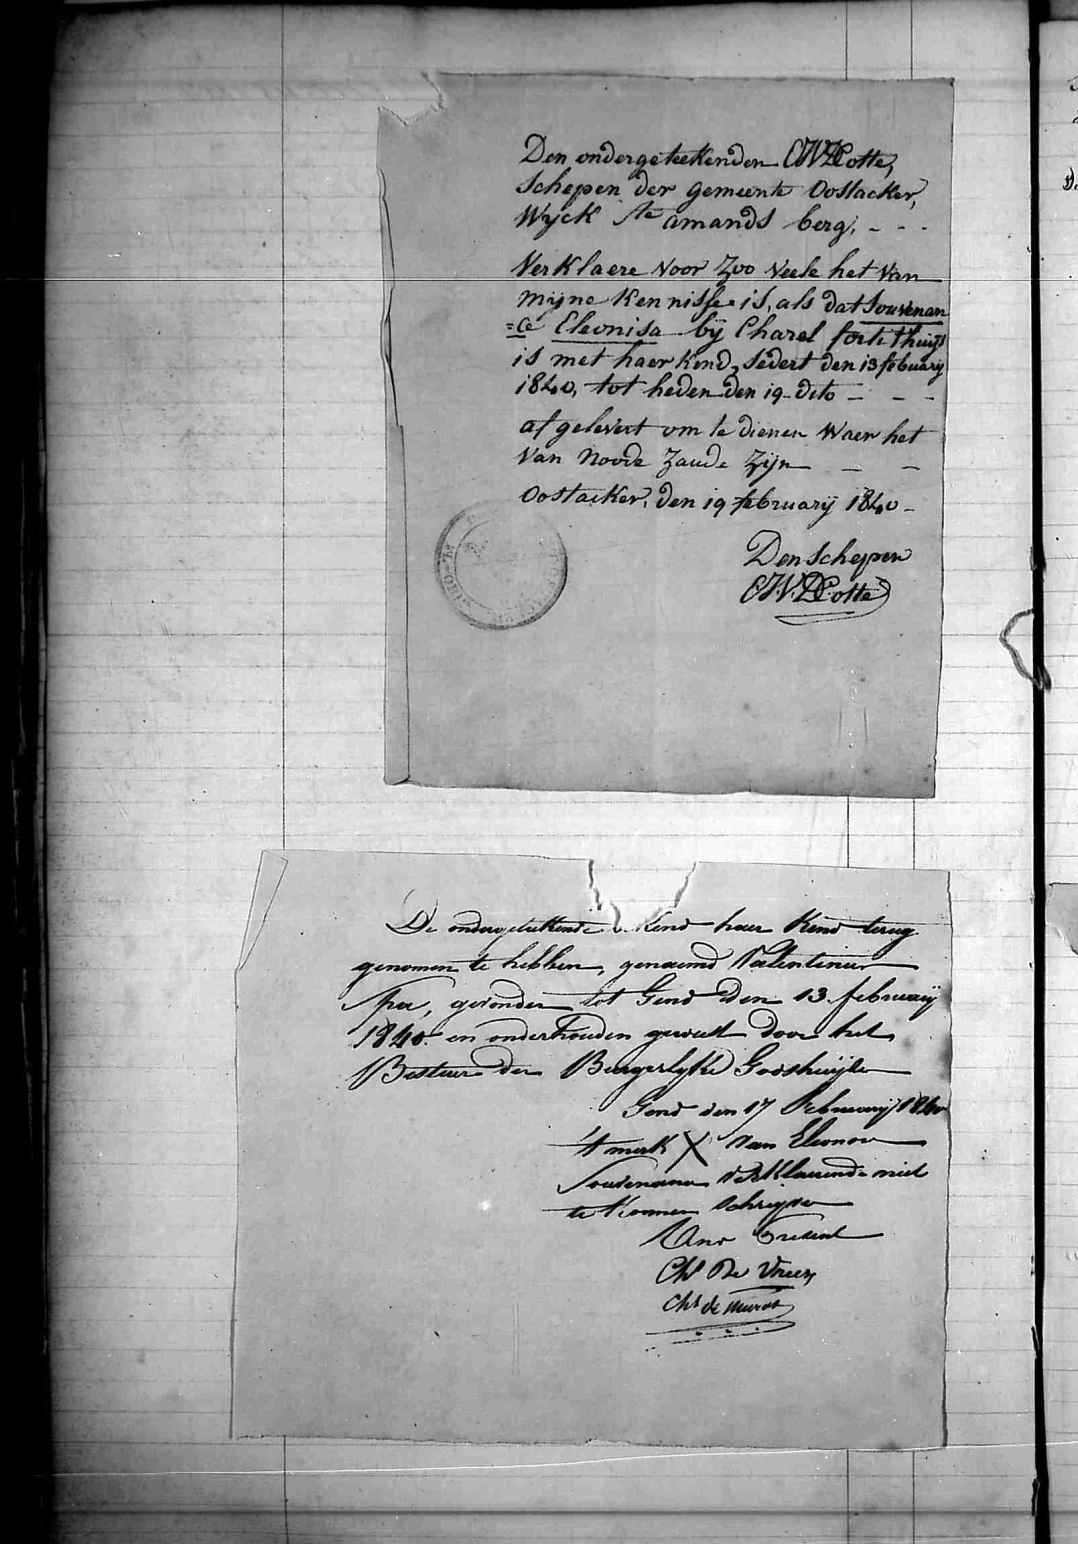 Den ondergeteekenden C.W.D Cotte,
Schepen der gemeente Oostacker,
Wyck Ste amands berg, - - -
Verklaere voor zoo veele het van
mijne kennisse is, als dat Souvenan
=ce Eleonisa bij Charel thuijs
is met haer kind, sedert den 13 februarij
1840, tot heden den 19 dito - - -
afgelevert om te dienen waer het
van noode zaude zijn - -
Oostacker, den 19 februarij 1840 -
Den Schepen
C.W.D Cotte
De ondergeteekende kend haer kind terug
genomen te hebben, genaemd Vallentinus
Spa, gevonden tot Gend den 13 february
1840 en onderhouden geweest door het
Bestuer der Burgerlyke Godshuijzen
Gend den 17 Februarij 1840
't merk X van Eleonora
Souvenance verklaerende niet
te konnen schryven
Chs De Vreese
Chs de